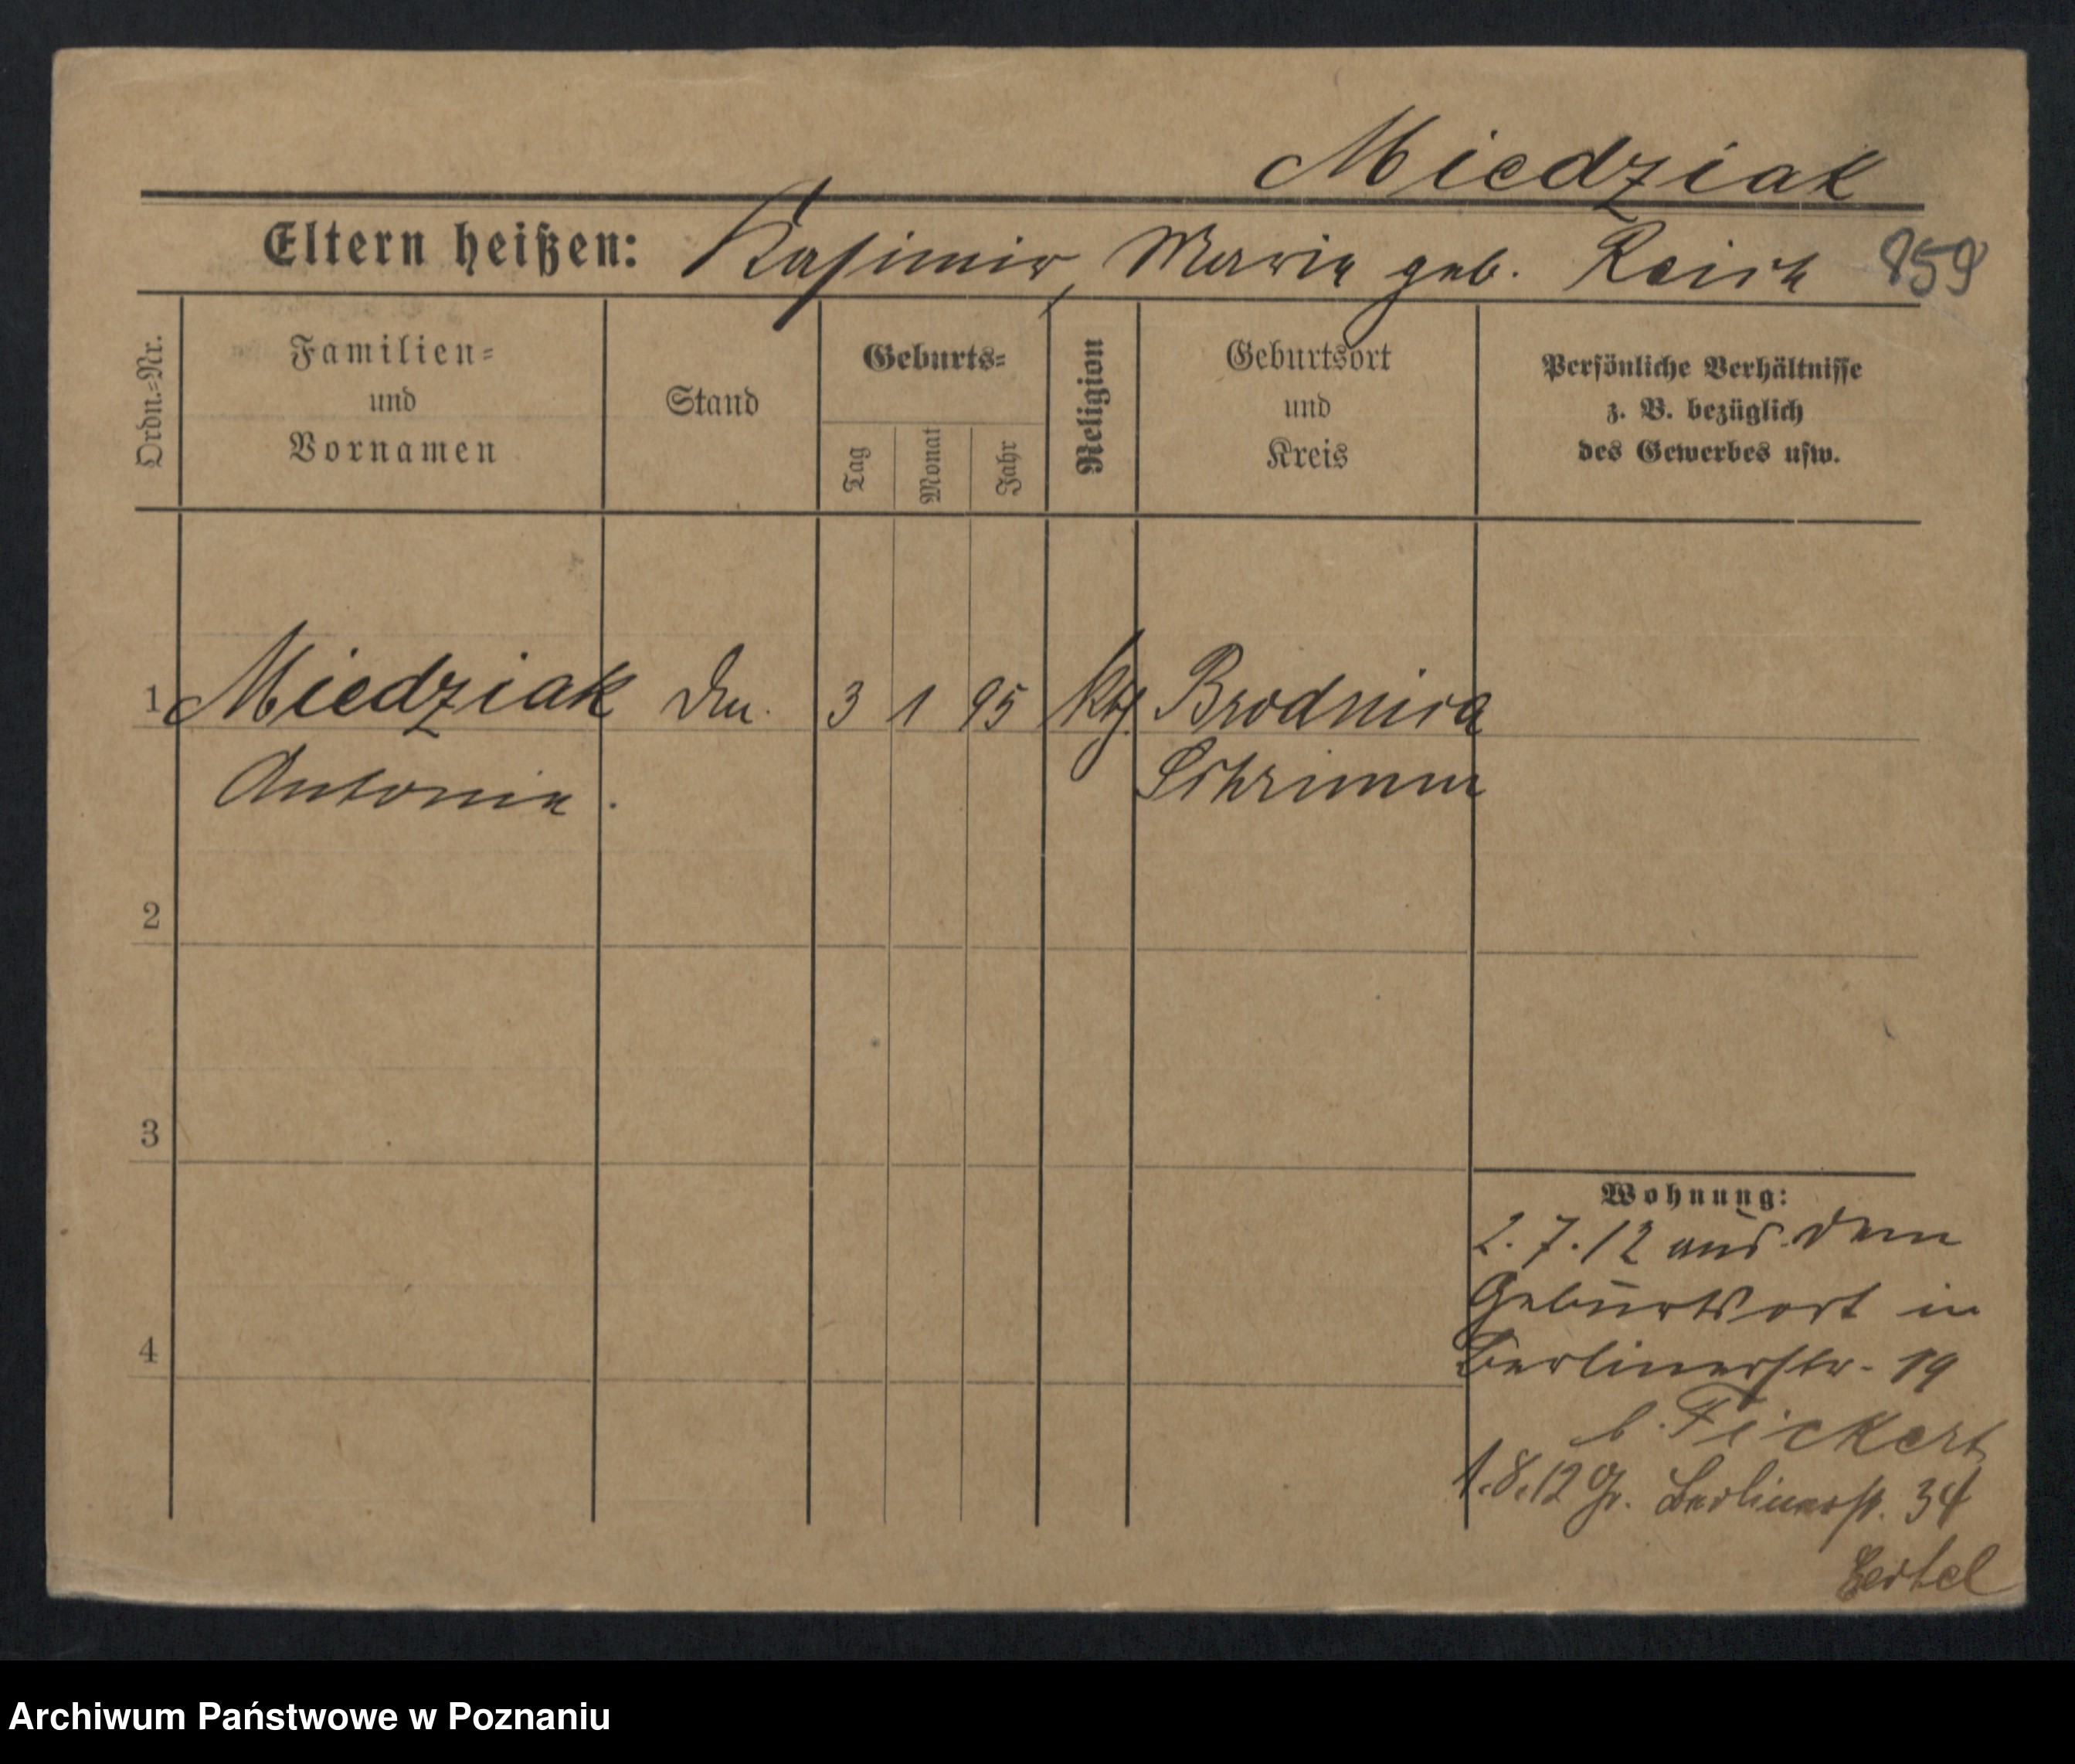 Miedziak
Eltern heißen: Kasimir, Marie geb. Reich 859
Ordn.-Nr.
Familien-
und
Vornamen
Stand
Geburts-
Tag
Monat
Jahr
Religion
Geburtsort
und
Kreis
Persönliche Verhältnisse
z. B. bezüglich
des Gewerbes usw.
1 Miedziak 3 1 95 kth. Brodnica
Antonie. Schrimm
2
3
4
Wohnung:
2.7.12 aus dem
Geburtsort in
Berlinerstr. 19
b. Fickert
1.8.12 Gr. Berlinerstr. 34
Archiwum Państwowe w Poznaniu